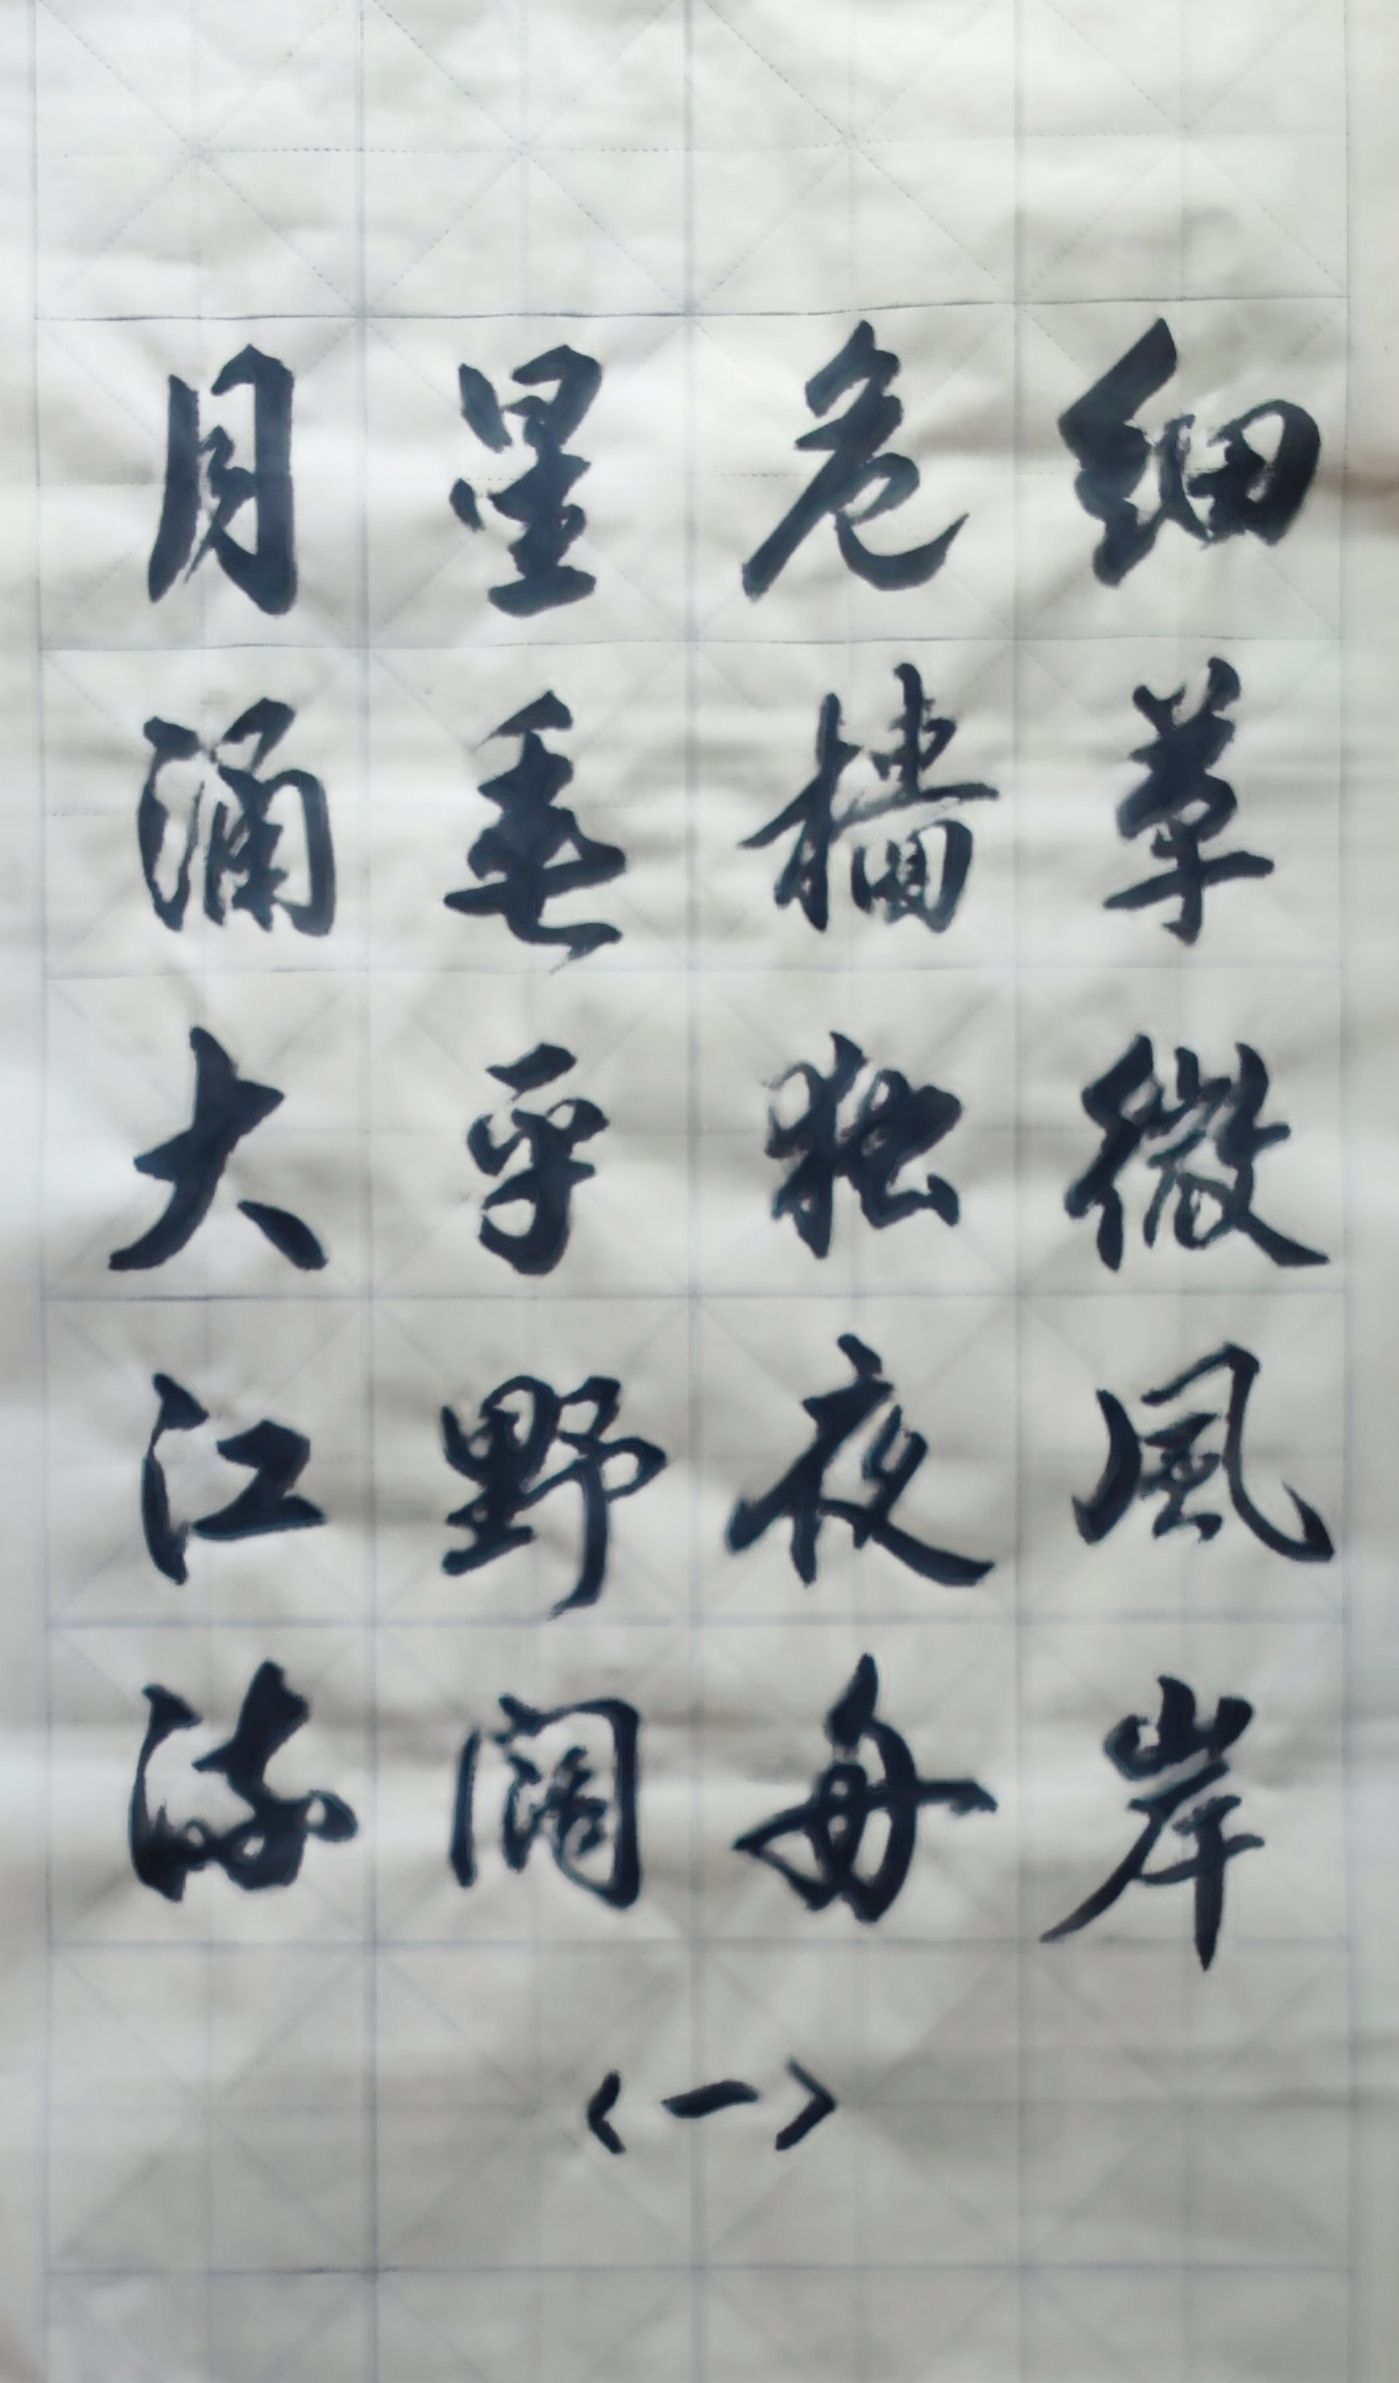 细草微風岸
危樯独夜舟
星垂平野阔
月涌大江流
<一>